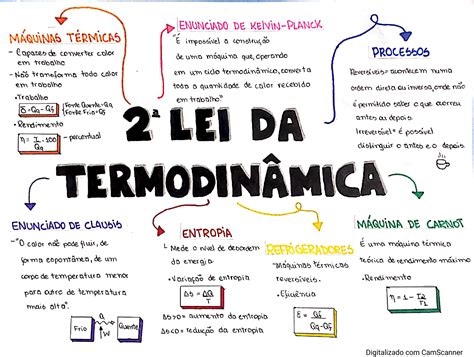 MÁQUINAS TÉRMICAS
- Capazes de converter calor
em trabalho
- Não transforma todo calor
em trabalho
• Trabalho
δ = Qq - Qf
Fonte Quente = Qq
Fonte Fria = Qf
• Rendimento
η = I · 100
Qq
- percentual
ENUNCIADO DE KELVIN-PLANCK
"É impossível a construção
de uma máquina que, operando
em um ciclo termodinâmico, converta
toda a quantidade de calor recebido
em trabalho"
PROCESSOS
Reversíveis = acontecem numa
ordem direta ou inversa, onde não
é permitido saber o que ocorreu
antes ou depois.
Irreversível = é possível
distinguir o antes e o depois.
2ª LEI DA
TERMODINÂMICA
ENUNCIADO DE CLAUSIS
- "O calor não pode fluir, de
forma espontânea, de um
corpo de temperatura menor
para outro de temperatura
mais alta".
Frio
Q
W
Quente
ENTROPIA
Mede o nível de desordem
da energia
• Variação de entropia
ΔS = ΔQ
T
ΔS>0 = aumento da entropia
ΔS<0 = redução da entropia
REFRIGERADORES
"Máquinas térmicas
reversíveis.
• Eficiência
E = Qf
Qq-Qf
MÁQUINA DE CARNOT
É uma máquina térmica
teórica de rendimento máximo
• Rendimento
η = 1 - T2
T1
Digitalizado com CamScanner